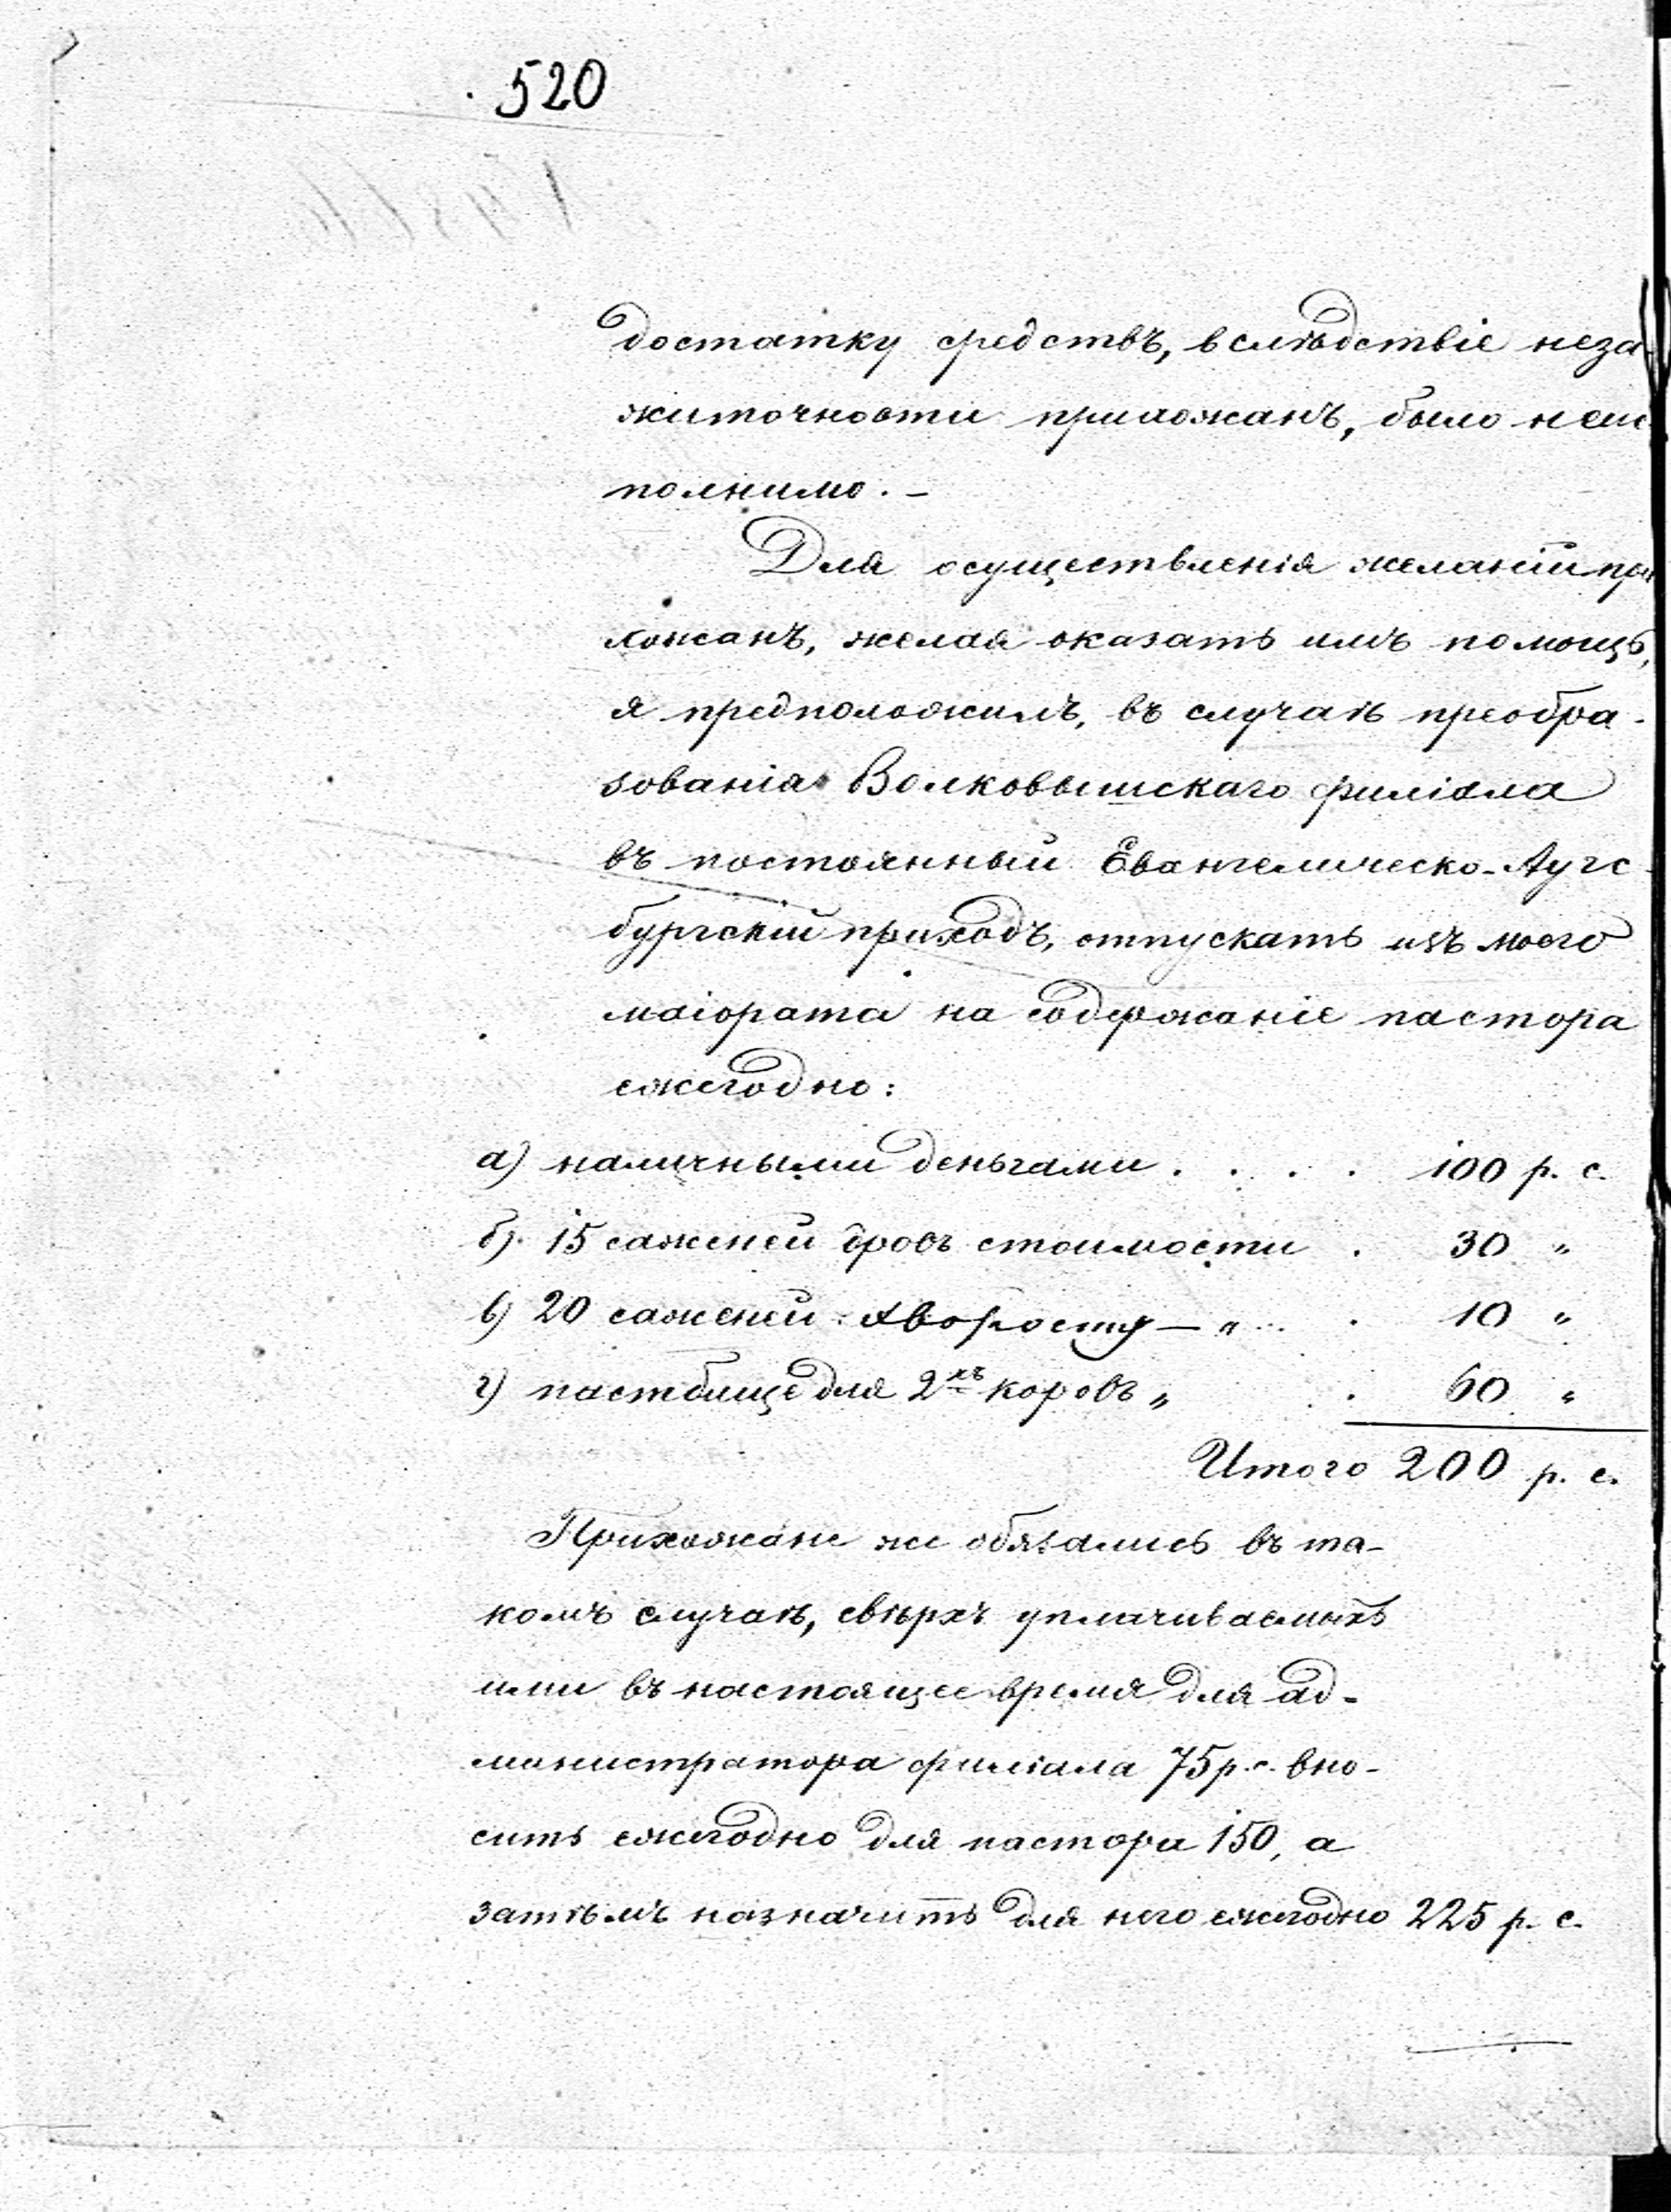 520
достатку средствъ, вслѣдствіе неза-
житочности прихожанъ, было неис
полнимо. –
Для осуществленія желаній при
хожанъ, желая оказать имъ помощь,
я предположилъ, въ случаѣ преобра-
зованія Волковышскаго филіала
въ постоянный Евангелическо-Аугс-
бургскій приходъ, отпускать изъ моего
маіората на содержаніе пастора
ежегодно:
а) наличными деньгами . . . . 100 р. с.
б). 15 саженей дровъ стоимости . 30 "
в) 20 саженей хворосту — " . . 10 "
г) пастбище для 2хъ коровъ " . . 60 "
Итого 200 р. с.
Прихожане же обязались въ та-
комъ случаѣ, свѣрхъ уплачиваемыхъ
ими въ настоящее время для ад-
министратора филіала 75 р. с. вно-
сить ежегодно для пастора 150, а
затѣмъ назначить для него ежегодно 225 р. с.